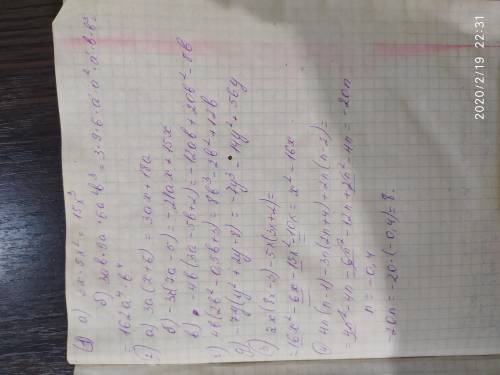 ① а) 3x·5x² = 15x³
б) 3ab·9a·6a²b³ = 3·9·6·a·a²·a·b·b³=
= 162a⁴·b⁴
2) а) 3a(x+6) = 3ax+18a
б) -3x(7a-5) = -21ax+15x
в) -4b(3a-5b+2) = -12ab+20b²-8b
г) 4b(2b²-0,5b+3) = 8b³-2b²+12b
д) -7y(y²+2y-8) = -7y³-14y²+56y
2x(8x-3)-5x(3x+2)=
=16x²-6x-15x²-10x = x²-16x
4n(n-1)-3n(2n+4)+2n(n-2)=
n = -0,4
-20n = -20·(-0,4) = 8.
2020/2/19 22:31